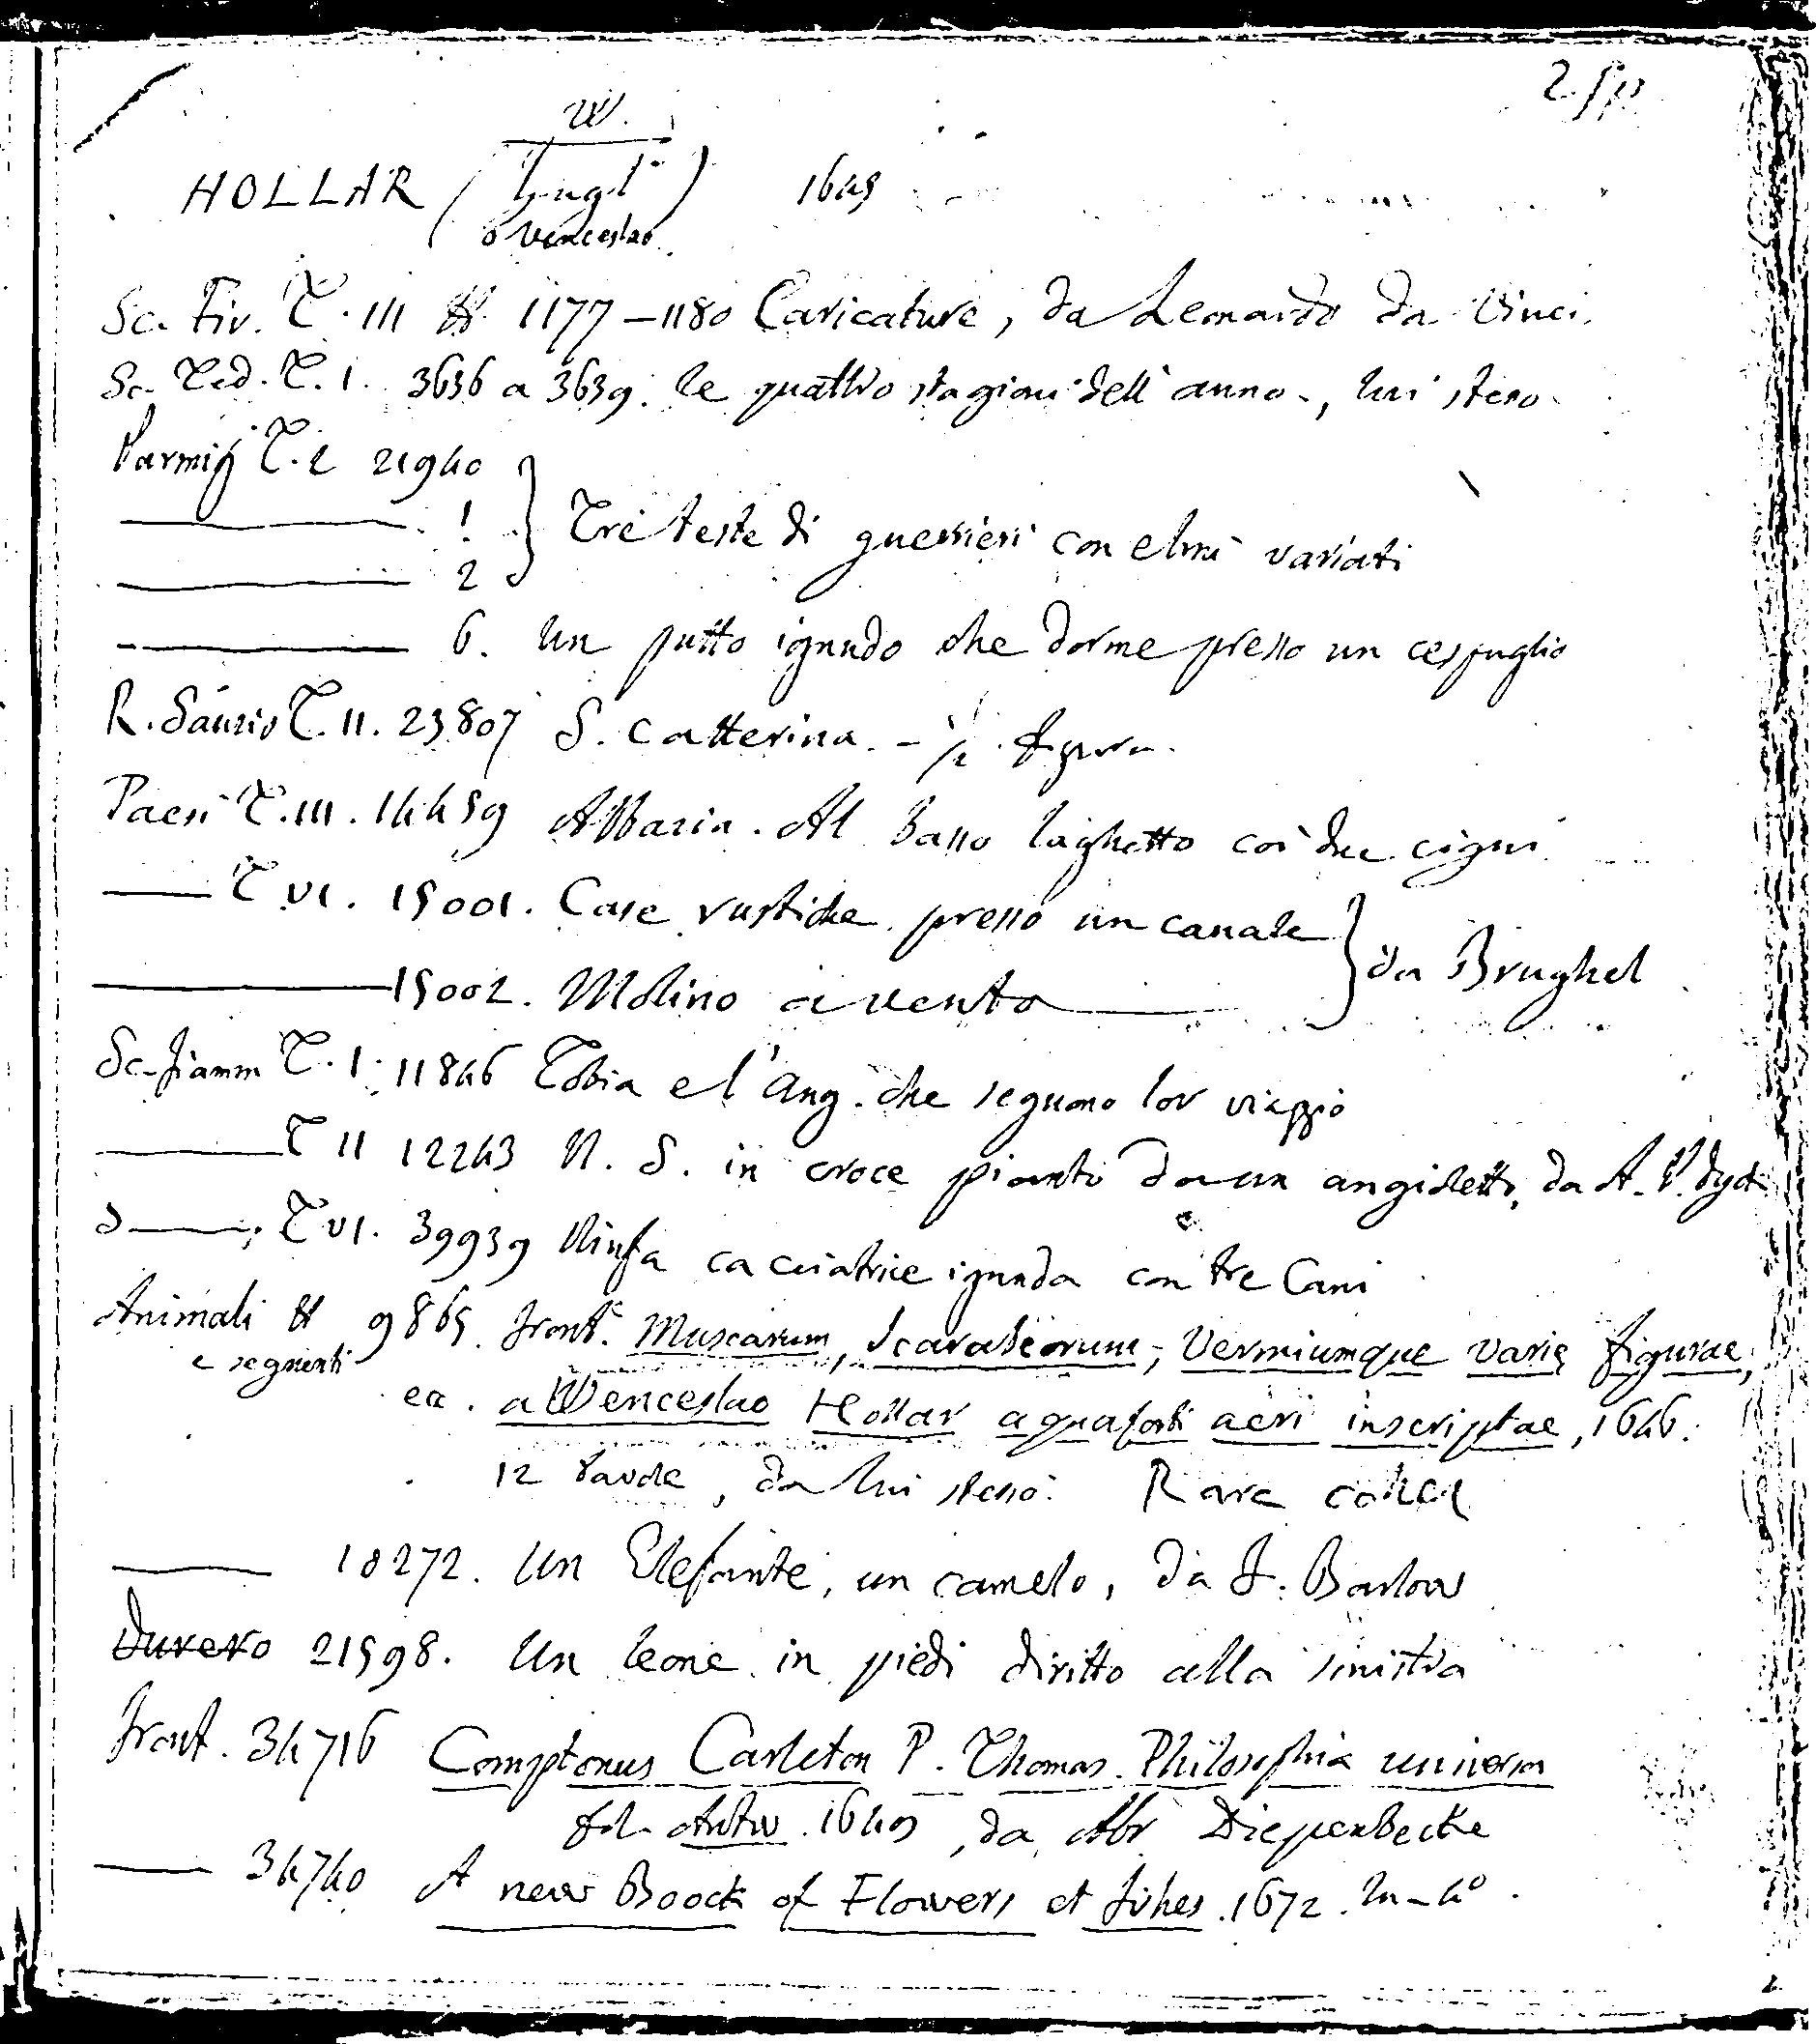 W.
HOLLAR ( Gugl.º ) 1649
o Venceslao.
Sc. Fir. T. III # 1177 - 1180 Caricature, da Leonardo da Vinci.
Sc. Ted. T. I. 3636 a 3639. le quattro stagioni dell'anno, lui stesso
Parmig T. 2 21940
1 } Tre teste di guerrieri con elmi variati
2
6. Un putto ignudo che dorme presso un cespuglio
R. Sanzio T. II. 23807 S. Catterina. - 1/2 figura.
Paesi T. III. 14459 Abbazia. Al basso laghetto coi due cigni
T. VI. 15001. Case rustiche presso un canale } da Brughel
15002. Molino a vento
Sc. fiamm T. I. 11846 Tobia e l'Ang. che seguono lor viaggio
T II 12243 N. S. in croce pianto da un angioletto, da A. V. Dyck
d T VI. 39939 Ninfa cacciatrice ignuda con tre Cani
Animali # 9865. front.e Muscarum, Scarabeorum, Vermiumque varie figurae,
e seguenti
ec. a Wenceslao Hollar aquaforti aeri inscriptae, 1646.
12 tavole, da lui stesso. Rare
10272. Un Elefante, un camelo, da F. Barlow
Durero 21598. Un leone in piedi diritto alla sinistra
front. 34716 Comptonus Carleton P. Thomas. Philosophia universa
fol. Antw. 1649, da Abr Diepenbecke
34740 A new Boock of Flowers et fishes. 1672. In-4º.